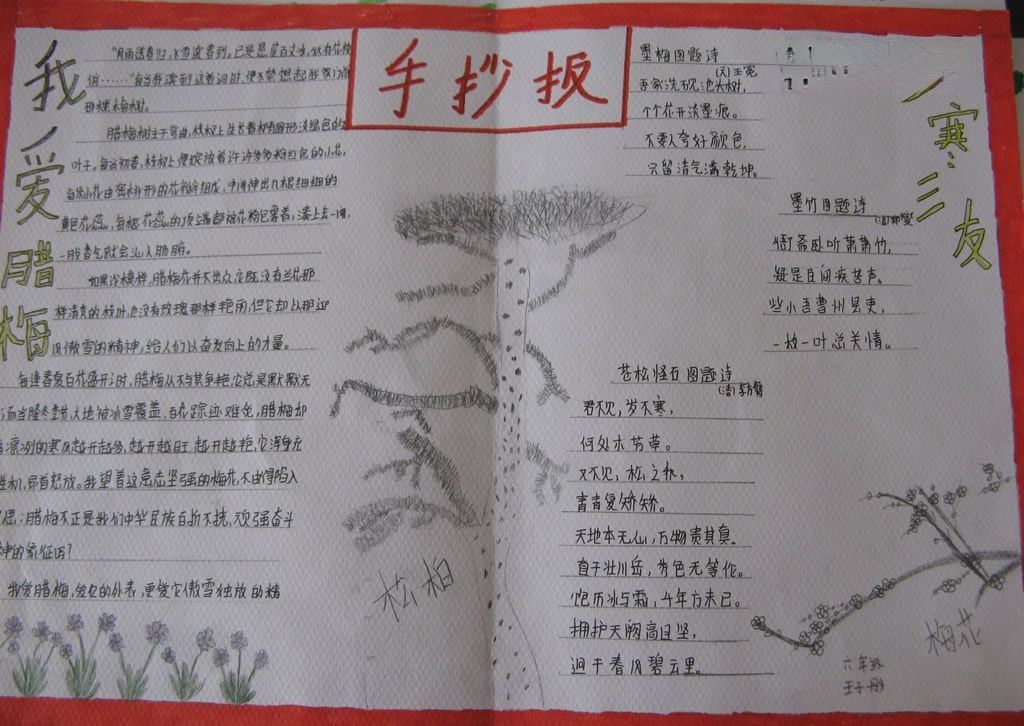 手抄报
我爱腊梅
“风雨送春归,飞雪迎春到。已是悬崖百丈冰,犹有花枝
俏……”每当我读到这首词时,便不禁想起我家门前
那棵腊梅树。
腊梅树枝干弯曲,枝杈上生长着椭圆形淡绿色的
叶子。每当初春,枝杈上便绽放着许许多多粉红色的小花,
每朵小花由密桃形的花瓣组成,中间伸出几根细细的
黄色花蕊。每根花蕊的顶端都被花粉包裹着,凑上去一闻,
一股香气就会沁人肺腑。
如果论模样,腊梅花并不出众,它既没有兰花那
样清秀的枝叶,也没有玫瑰那样艳丽,但它却以那迎
风傲雪的精神,给人们以奋发向上的力量。
每逢春夏百花盛开之时,腊梅从不与其争艳,它总是默默无
而当隆冬季节,大地被冰雪覆盖,百花踪迹难觅,腊梅却
凛冽的寒风越开越多,越开越旺,越开越艳,它浑身充
生机,昂首怒放。我望着这意志坚强的梅花,不由得陷入
思:腊梅不正是我们中华民族百折不挠,顽强奋斗
神的象征吗?
我爱腊梅,爱它的外表,更爱它傲雪独放的精
松柏
墨梅图题诗
(元)王冕
吾家洗砚池头树,
个个花开淡墨痕。
不要人夸好颜色,
只留清气满乾坤。
寒三友
墨竹图题诗
(清)郑燮
衙斋卧听萧萧竹,
疑是民间疾苦声。
些小吾曹州县吏,
一枝一叶总关情。
苍松怪石图题诗
(清)李方膺
君不见,岁不寒,
何处木芳草。
又不见,松之机,
青青复矫矫。
天地本无心,万物贵其真。
直干壮川岳,秀色无等伦。
饱历冰与霜,千年方未已。
拥护天阙高且坚,
迥干春风碧云里。
梅花
六年级
王子彤